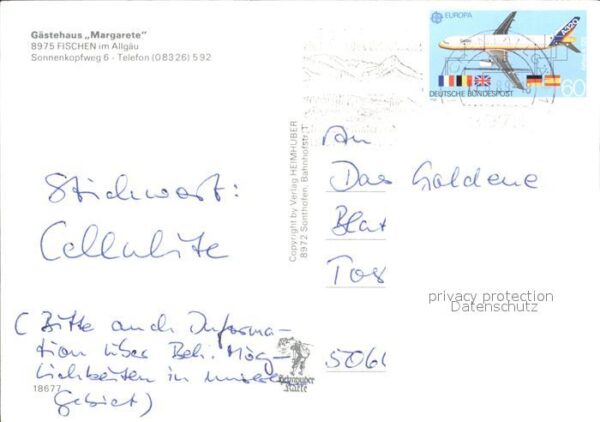 Gästehaus „Margarete"
8975 FISCHEN im Allgäu
Sonnenkopfweg 6 - Telefon (08326) 592
EUROPA
A320
DEUTSCHE BUNDESPOST
60
Stichwort:
Cellulite
(Bitte auch Informa-
tion über Beh. Mög-
lichkeiten in unserem
Gebiet)
18677
Copyright by Verlag HEIMHUBER
8972 Sonthofen, Bahnhofstr. 1
Heimhuber
Karte
An
Das Goldene
Blat
5060
privacy protection
Datenschutz